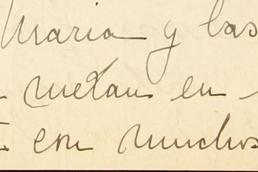 Maria y las
metan en
con muchos